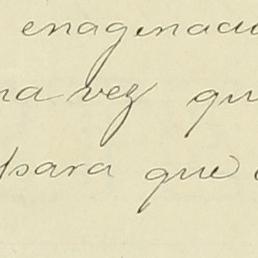 enagenaci
na vez qu
para que